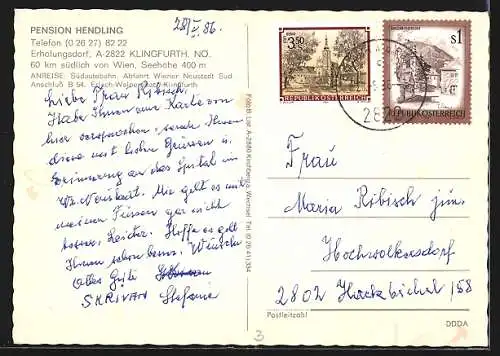 PENSION HENDLING
Telefon (0 26 27) 82 22
Erholungsdorf, A-2822 KLINGFURTH, NÖ.
60 km südlich von Wien, Seehöhe 400 m
ANREISE: Südautobahn, Abfahrt Wiener Neustadt Süd
Anschluß B 54, Erlach-Walpersbach-Klingfurth
28/V. 86.
Liebe Frau Ribisch!
Habe Ihnen eine Karte von
hier versprochen, sende Ihnen
diese mit lieben Grüssen u.
Erinnerung an das Spital in
Wr. Neustadt. Mir geht es mit
meinen Füssen gar nicht
besser, Leider. Hoffe es geht
Ihnen schon besser, Wünsche
Alles Gute
SKRIVAN Stefanie
Foto-B. Lor, A-2880 Kirchberg a. Wechsel, Tel. (0 26 41) 334
3.50
REPUBLIK ÖSTERREICH
s1
REPUBLIK ÖSTERREICH
Frau
Maria Ribisch jun.
Hochwolkersdorf
2802 Hackbichel 158
Postleitzahl
DDDA
3